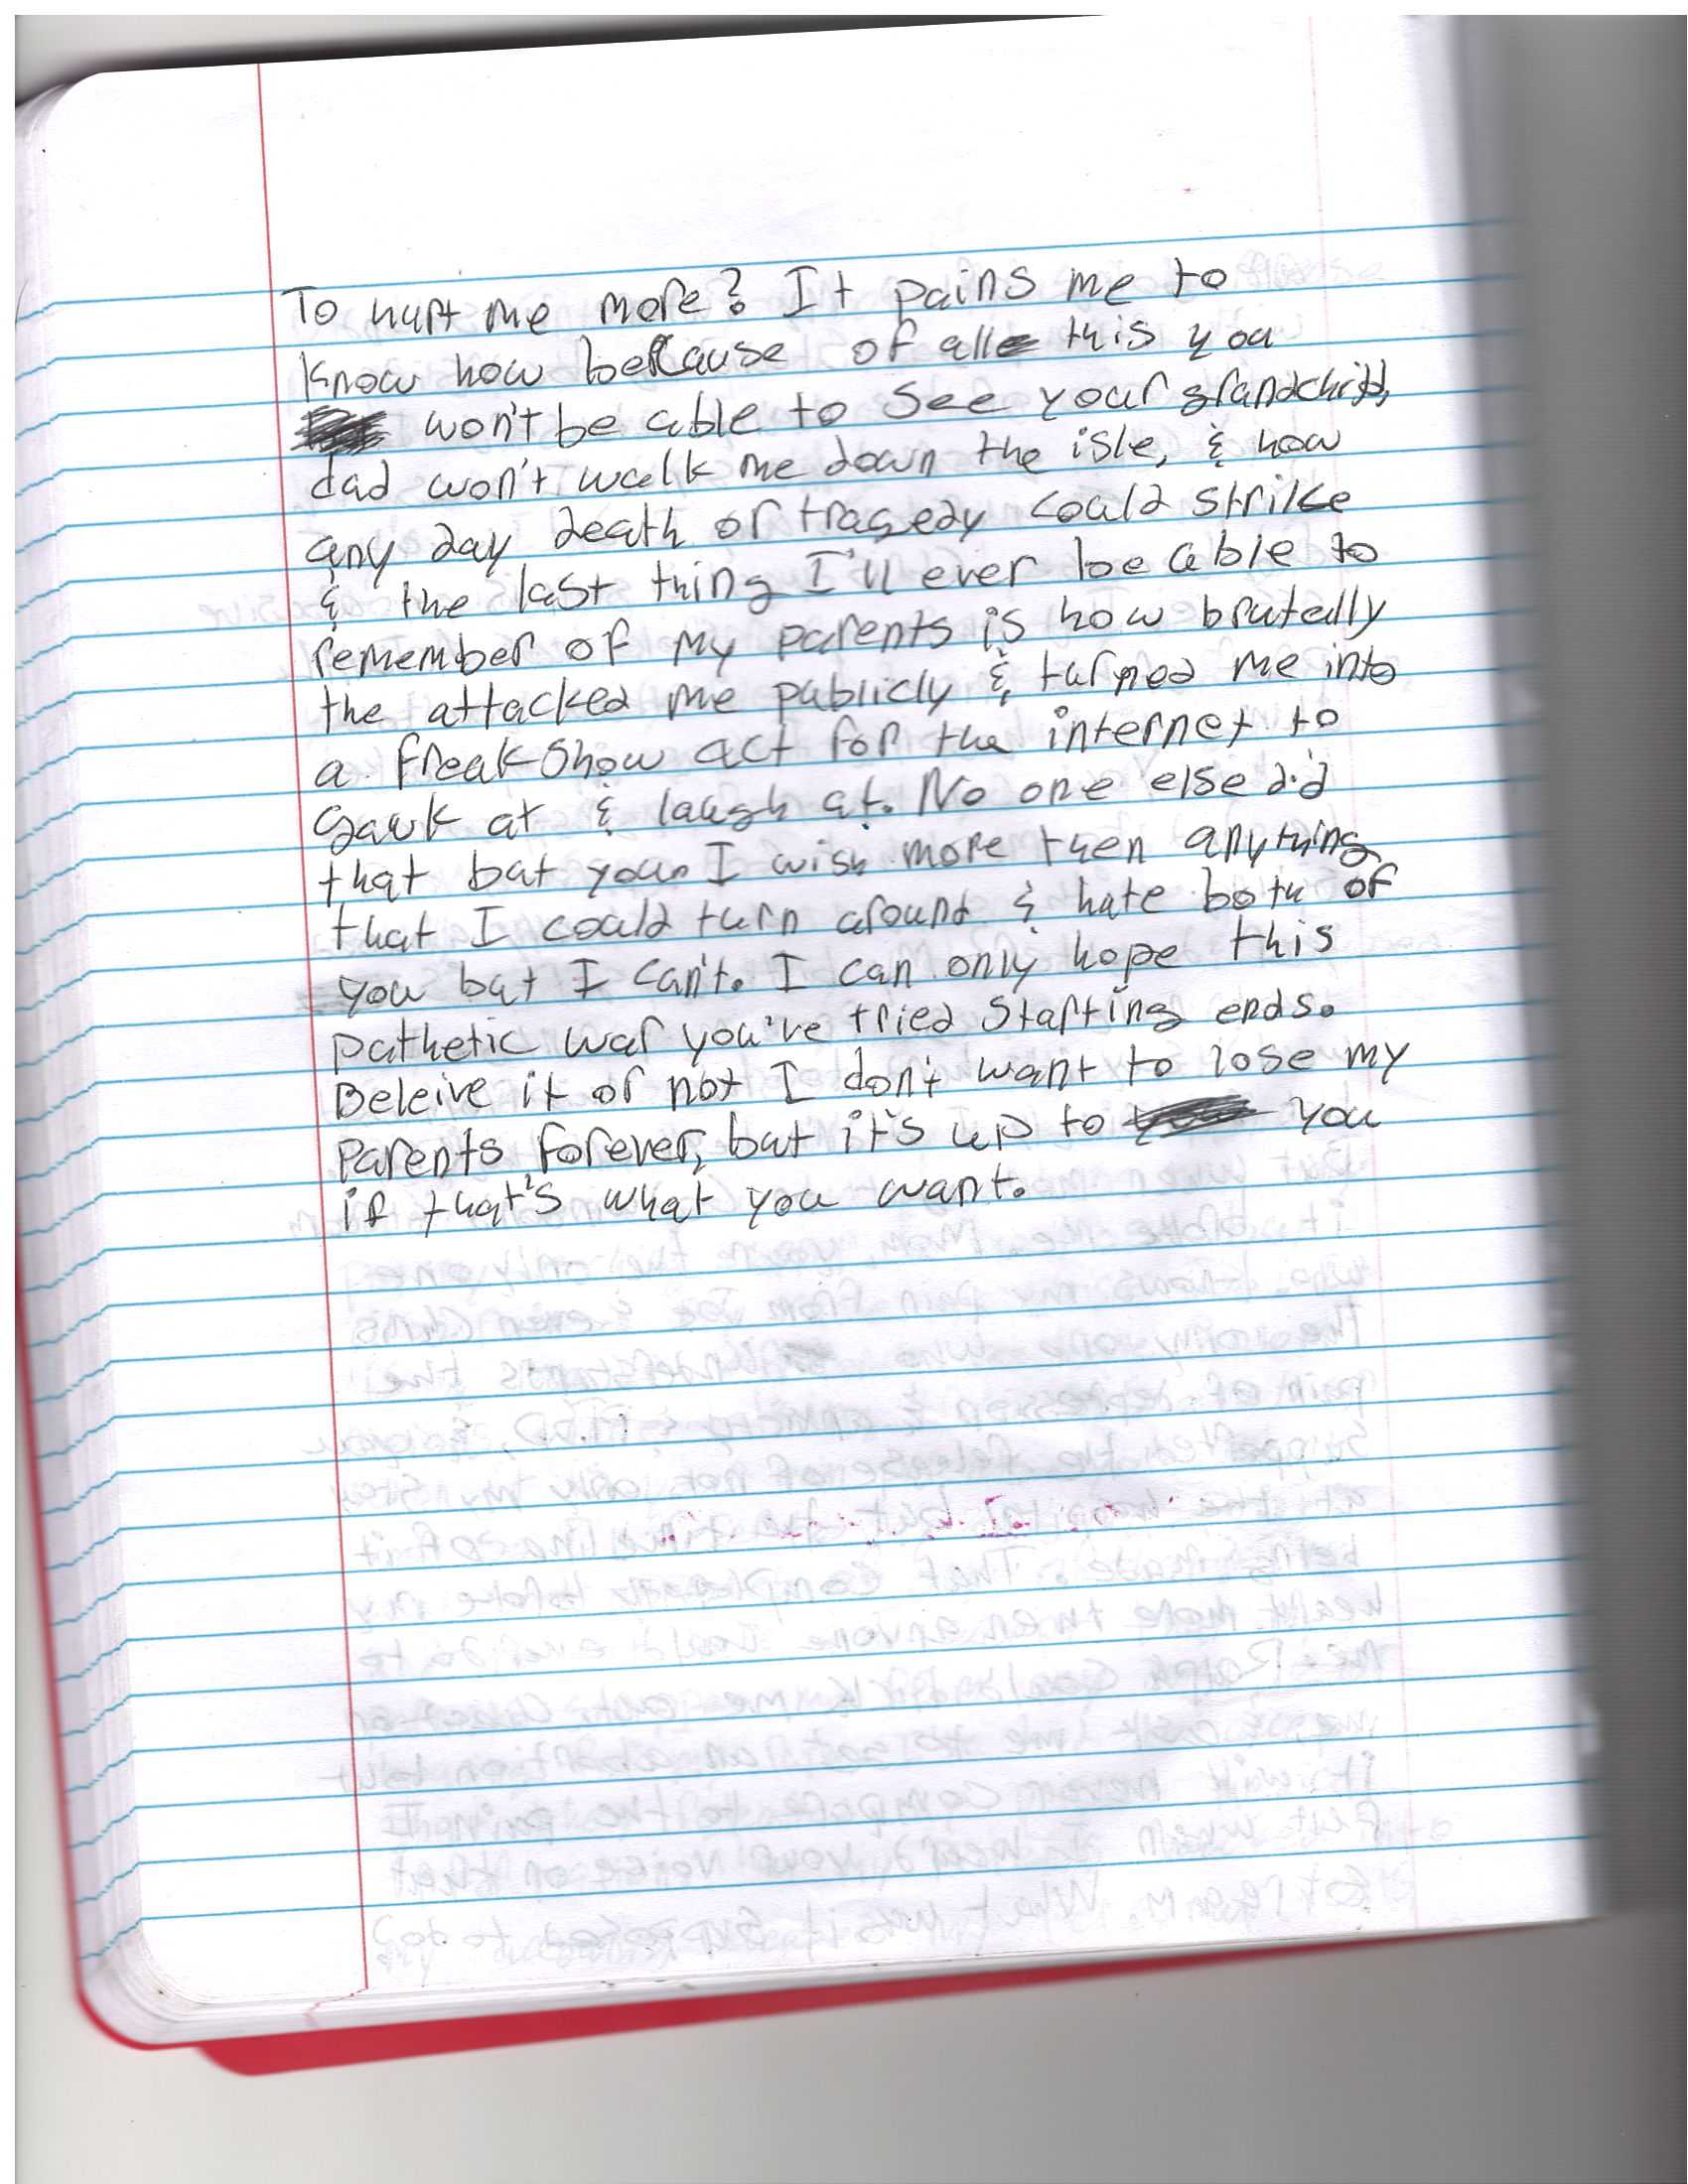 To hurt me more? It pains me to
know how because of all this you
won't be able to see your grandchild,
dad won't walk me down the isle, & how
any day death or tragedy could strike
& the last thing I'll ever be able to
remember of my parents is how brutally
the attacked me publicly & turned me into
a freakshow act for the internet to
gawk at & laugh at. No one else did
that but you. I wish more then anything
that I could turn around & hate both of
you but I can't. I can only hope this
pathetic war you've tried starting ends.
Beleive it or not I don't want to lose my
parents forever, but it's up to you
if that's what you want.